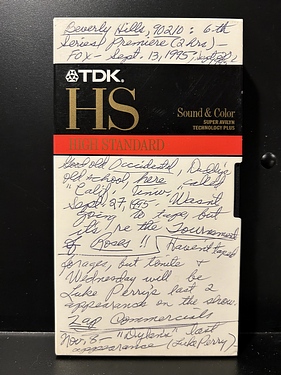 Beverly Hills, 90210: 6-th
Series Premiere (2 hrs) -
FOX - Sept. 13, 1995
TDK
HS
Sound & Color
SUPER AVILYN
TECHNOLOGY PLUS
HIGH STANDARD
Good old Occidental, Daddy's
old school here called
"Calif. Univ."
Sept. 27, 1995 - Wasn't
going to tape, but
it's re the Tournament
of Roses!! Haven't taped
for ages, but tonite &
Wednesday will be
Luke Perry's last 2
appearance on the show.
Zap Commercials
Nov. 8 - "Dylan's" last
appearance (Luke Perry)